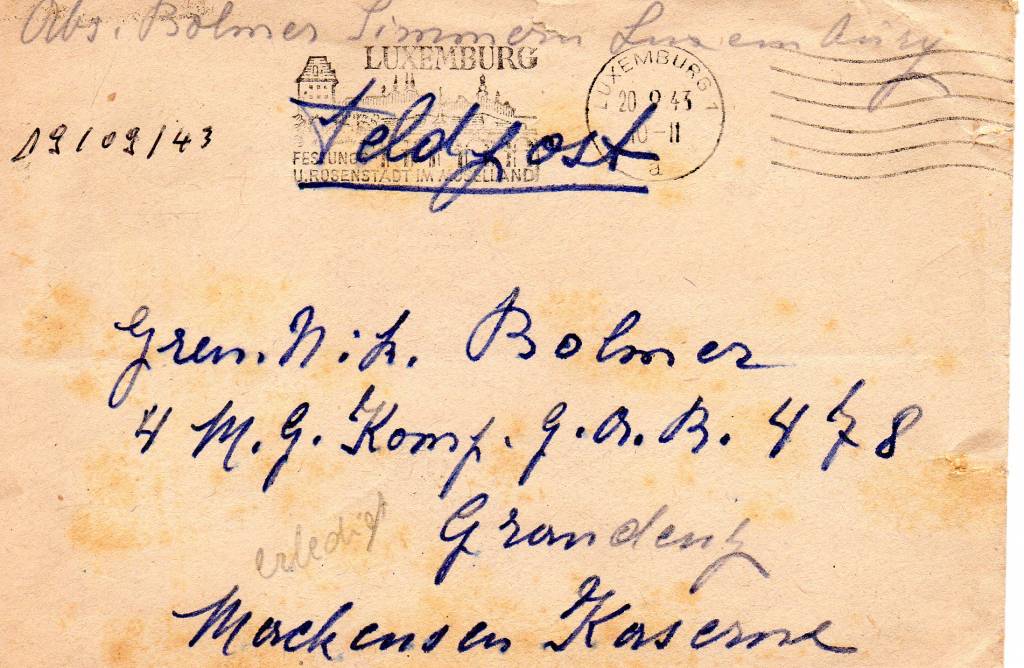 Abs. Bolmer Simmern Luxemburg
LUXEMBURG
FESTUNG
U.ROSENSTADT IM MOSELLAND
LUXEMBURG 1
20.9.43
10-11
a
19/09/43
Feldpost
Gren. Nik. Bolmer
4 M.G. Komp. G.A.B. 478
Graudenz
erledigt
Mackensen Kaserne